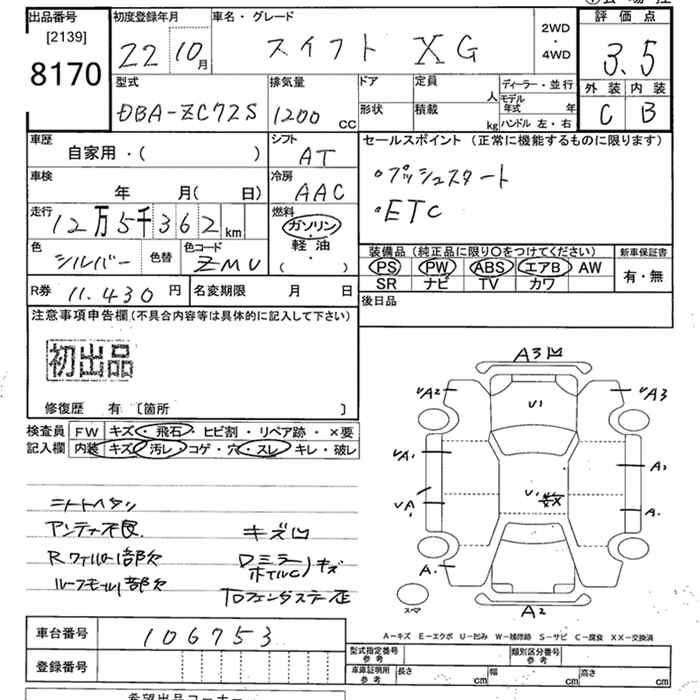 出品番号 初度登録年月 車名・グレード 評価点
[2139]
8170 22 10月 スイフト XG 2WD・4WD 3.5
外装 内装
C B
型式 排気量 ドア 定員 人 ディーラー・並行
DBA-ZC72S 1200 CC 形状 積載 kg モデル年式 年
ハンドル 左・右
車歴 シフト セールスポイント (正常に機能するものに限ります)
自家用・( ) AT
・プッシュスタート
車検 冷房
年 月( 日) AAC
・ETC
走行 燃料
12万5千362km ガソリン
軽油
( )
色 色替 色コード 装備品 (純正品に限り〇をつけてください) 新車保証書
シルバー ZMU PS PW ABS エアB AW 有・無
SR ナビ TV カワ
R券 11.430円 名変期限 月 日 後日品
注意事項申告欄(不具合内容等は具体的に記入して下さい)
初出品
修復歴 有 〔箇所 〕
検査員 FW キズ・飛石・ヒビ割・リペア跡・×要
記入欄 内装 キズ・汚レ・コゲ・穴・スレ・キレ・破レ
A3凹
UA2 UA3
U1
UA1 A1
U1
UA1 A1
A1
A2
スマ
シートヘタリ
アンテナ不良 キズ凹
Rワイパー1部欠 Dミラー
ホイルC)キズ
ルーフモール1部欠
車台番号 106753
登録番号
A-キズ E-エクボ U-凹み W-補修跡 S-サビ C-腐食 XX-交換済
型式指定番号 参考 類別区分番号 参考
車庫証明用 参考 長さ cm 幅 cm 高さ cm
希望出品コーナー